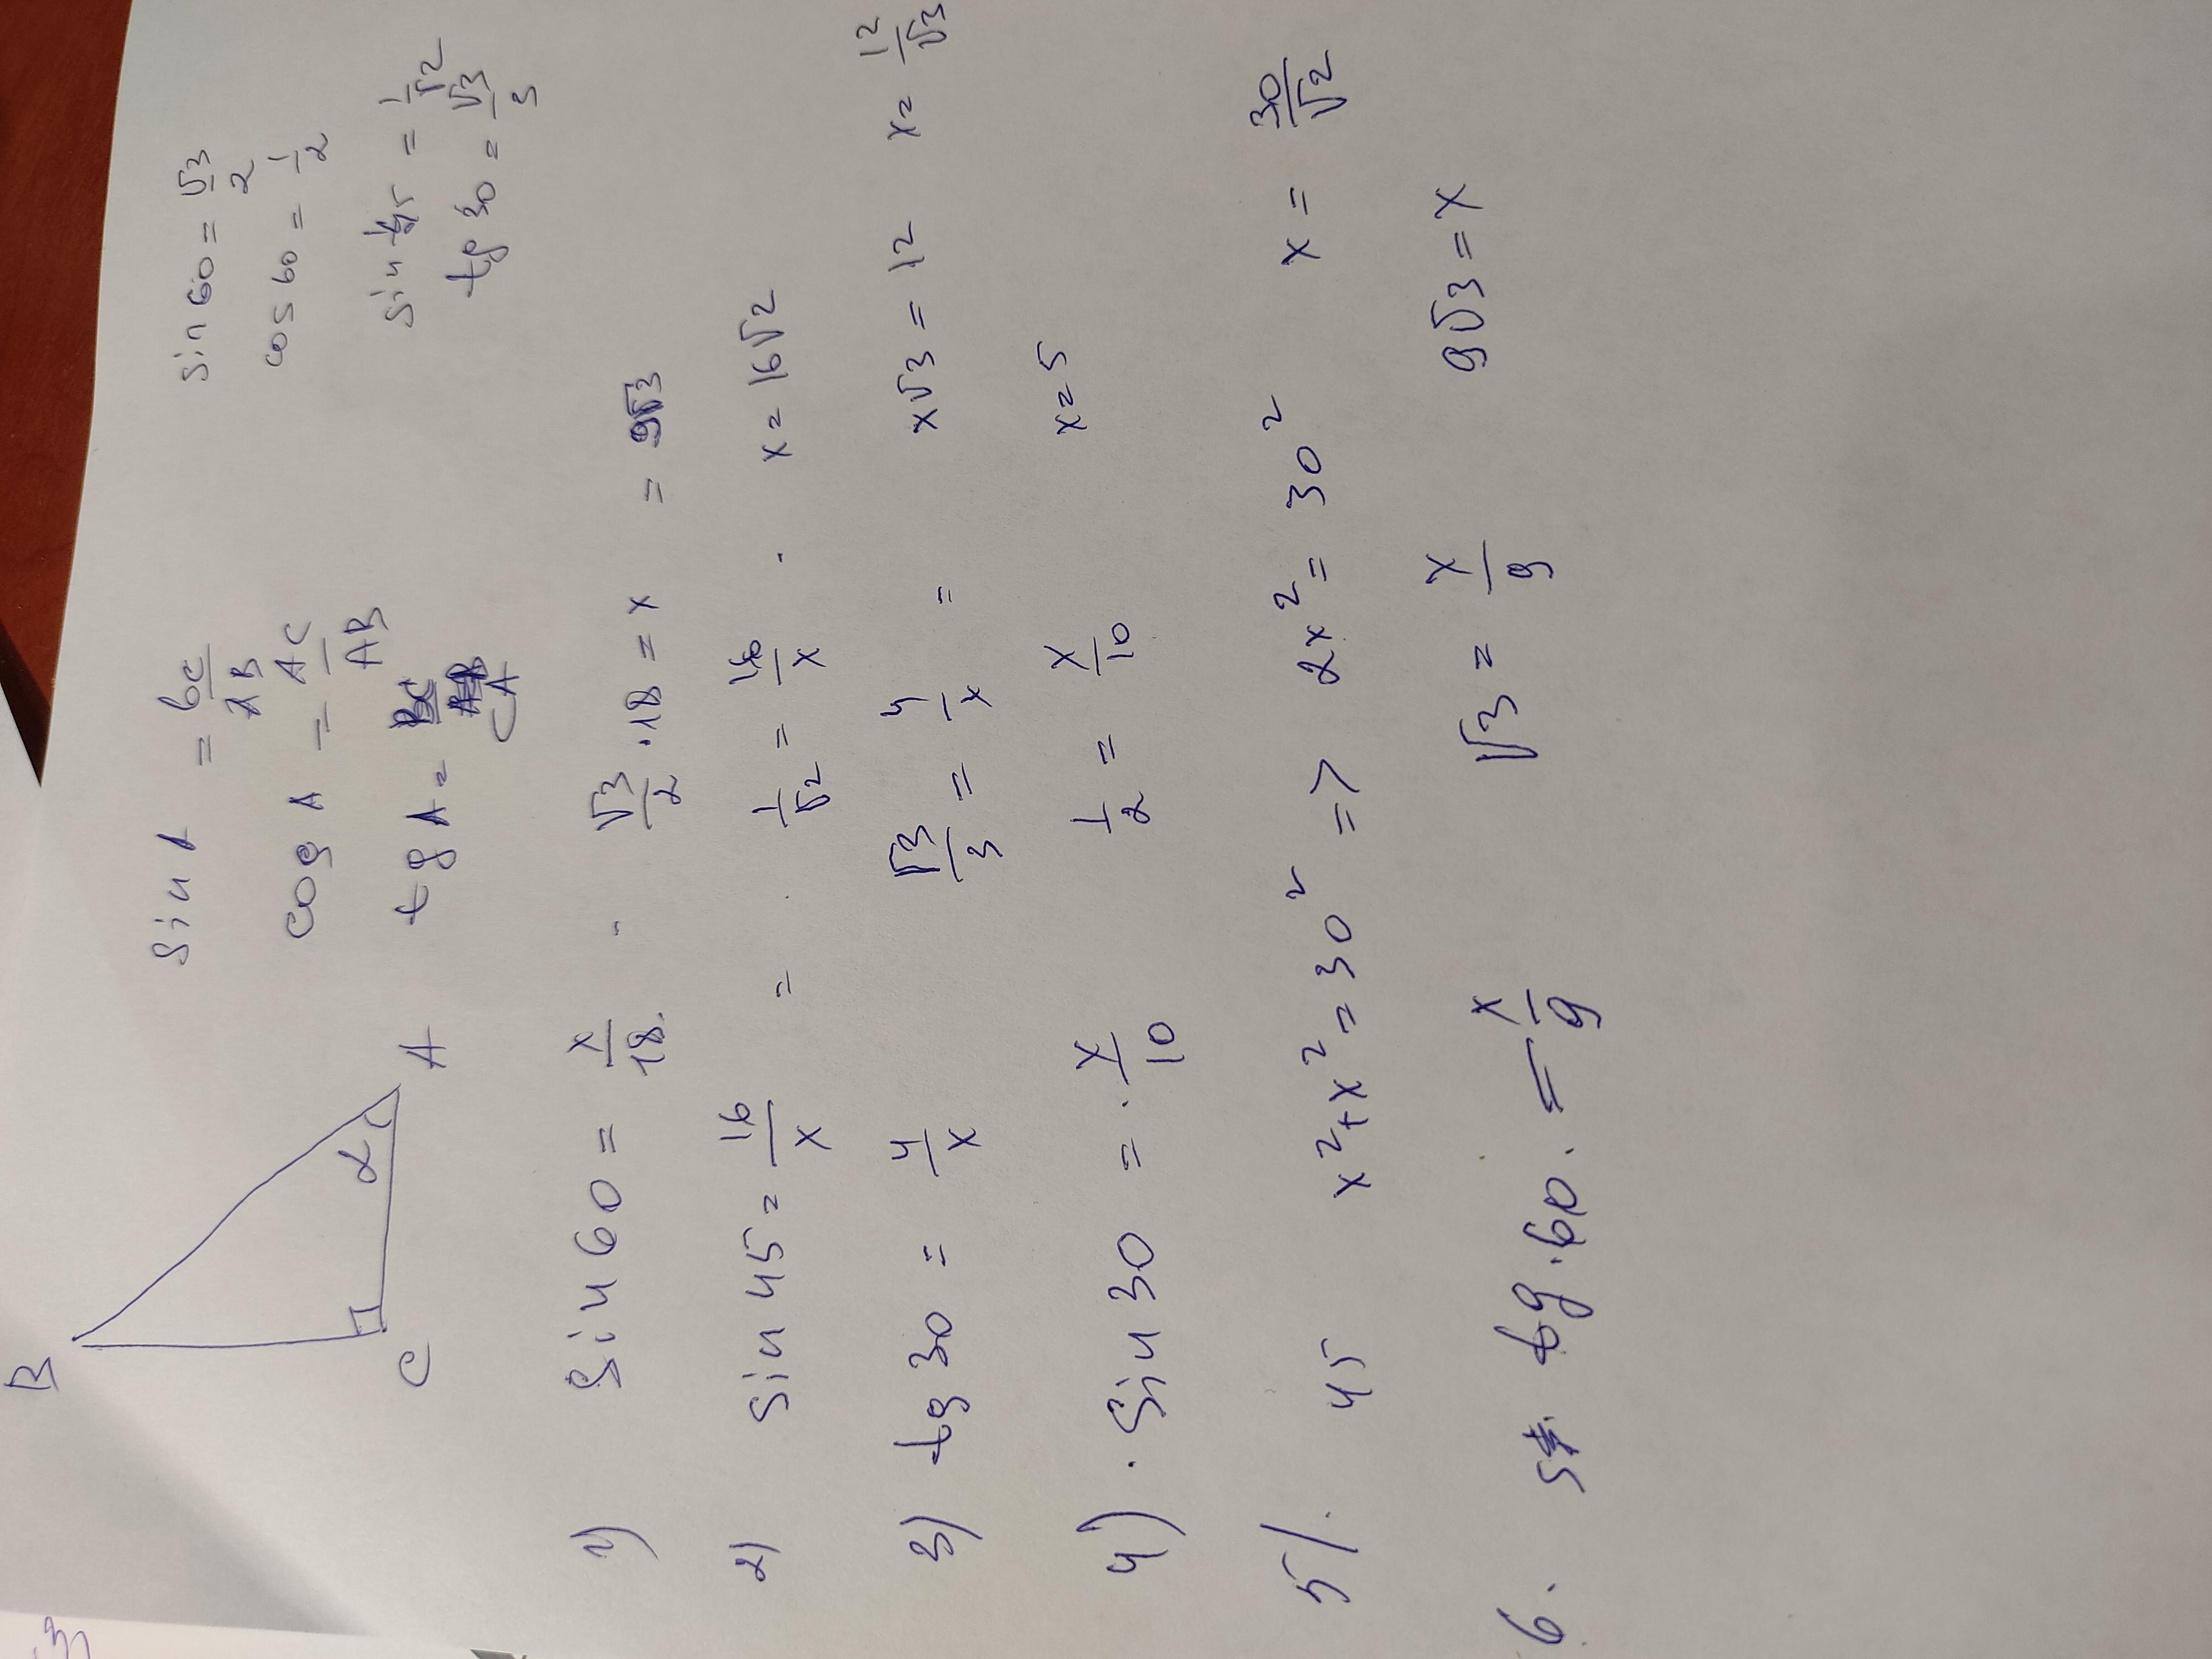 B
C
α
A
sin A = BC/AB
cos A = AC/AB
tg A = BC/CA
sin 60 = √3/2
cos 60 = 1/2
sin 45 = 1/√2
tg 30 = √3/3
1) Sin 60 = x/18. √3/2 · 18 = x = 9√3
2) Sin 45 = 16/x = 1/√2 = 16/x x = 16√2
3) tg 30 = 4/x √3/3 = 4/x = x√3 = 12 x = 12/√3
4) . Sin 30 = . x/10 1/2 = x/10 x = 5
5/. 45 x² + x² = 30² => 2x² = 30² x = 30/√2
6. tg . 60. = x/9 √3 = x/9 9√3 = x